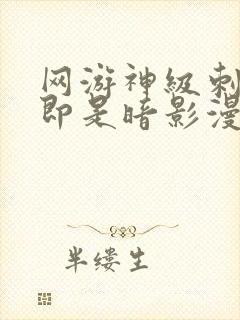 网游神级刺
即是暗影漫
半缕生